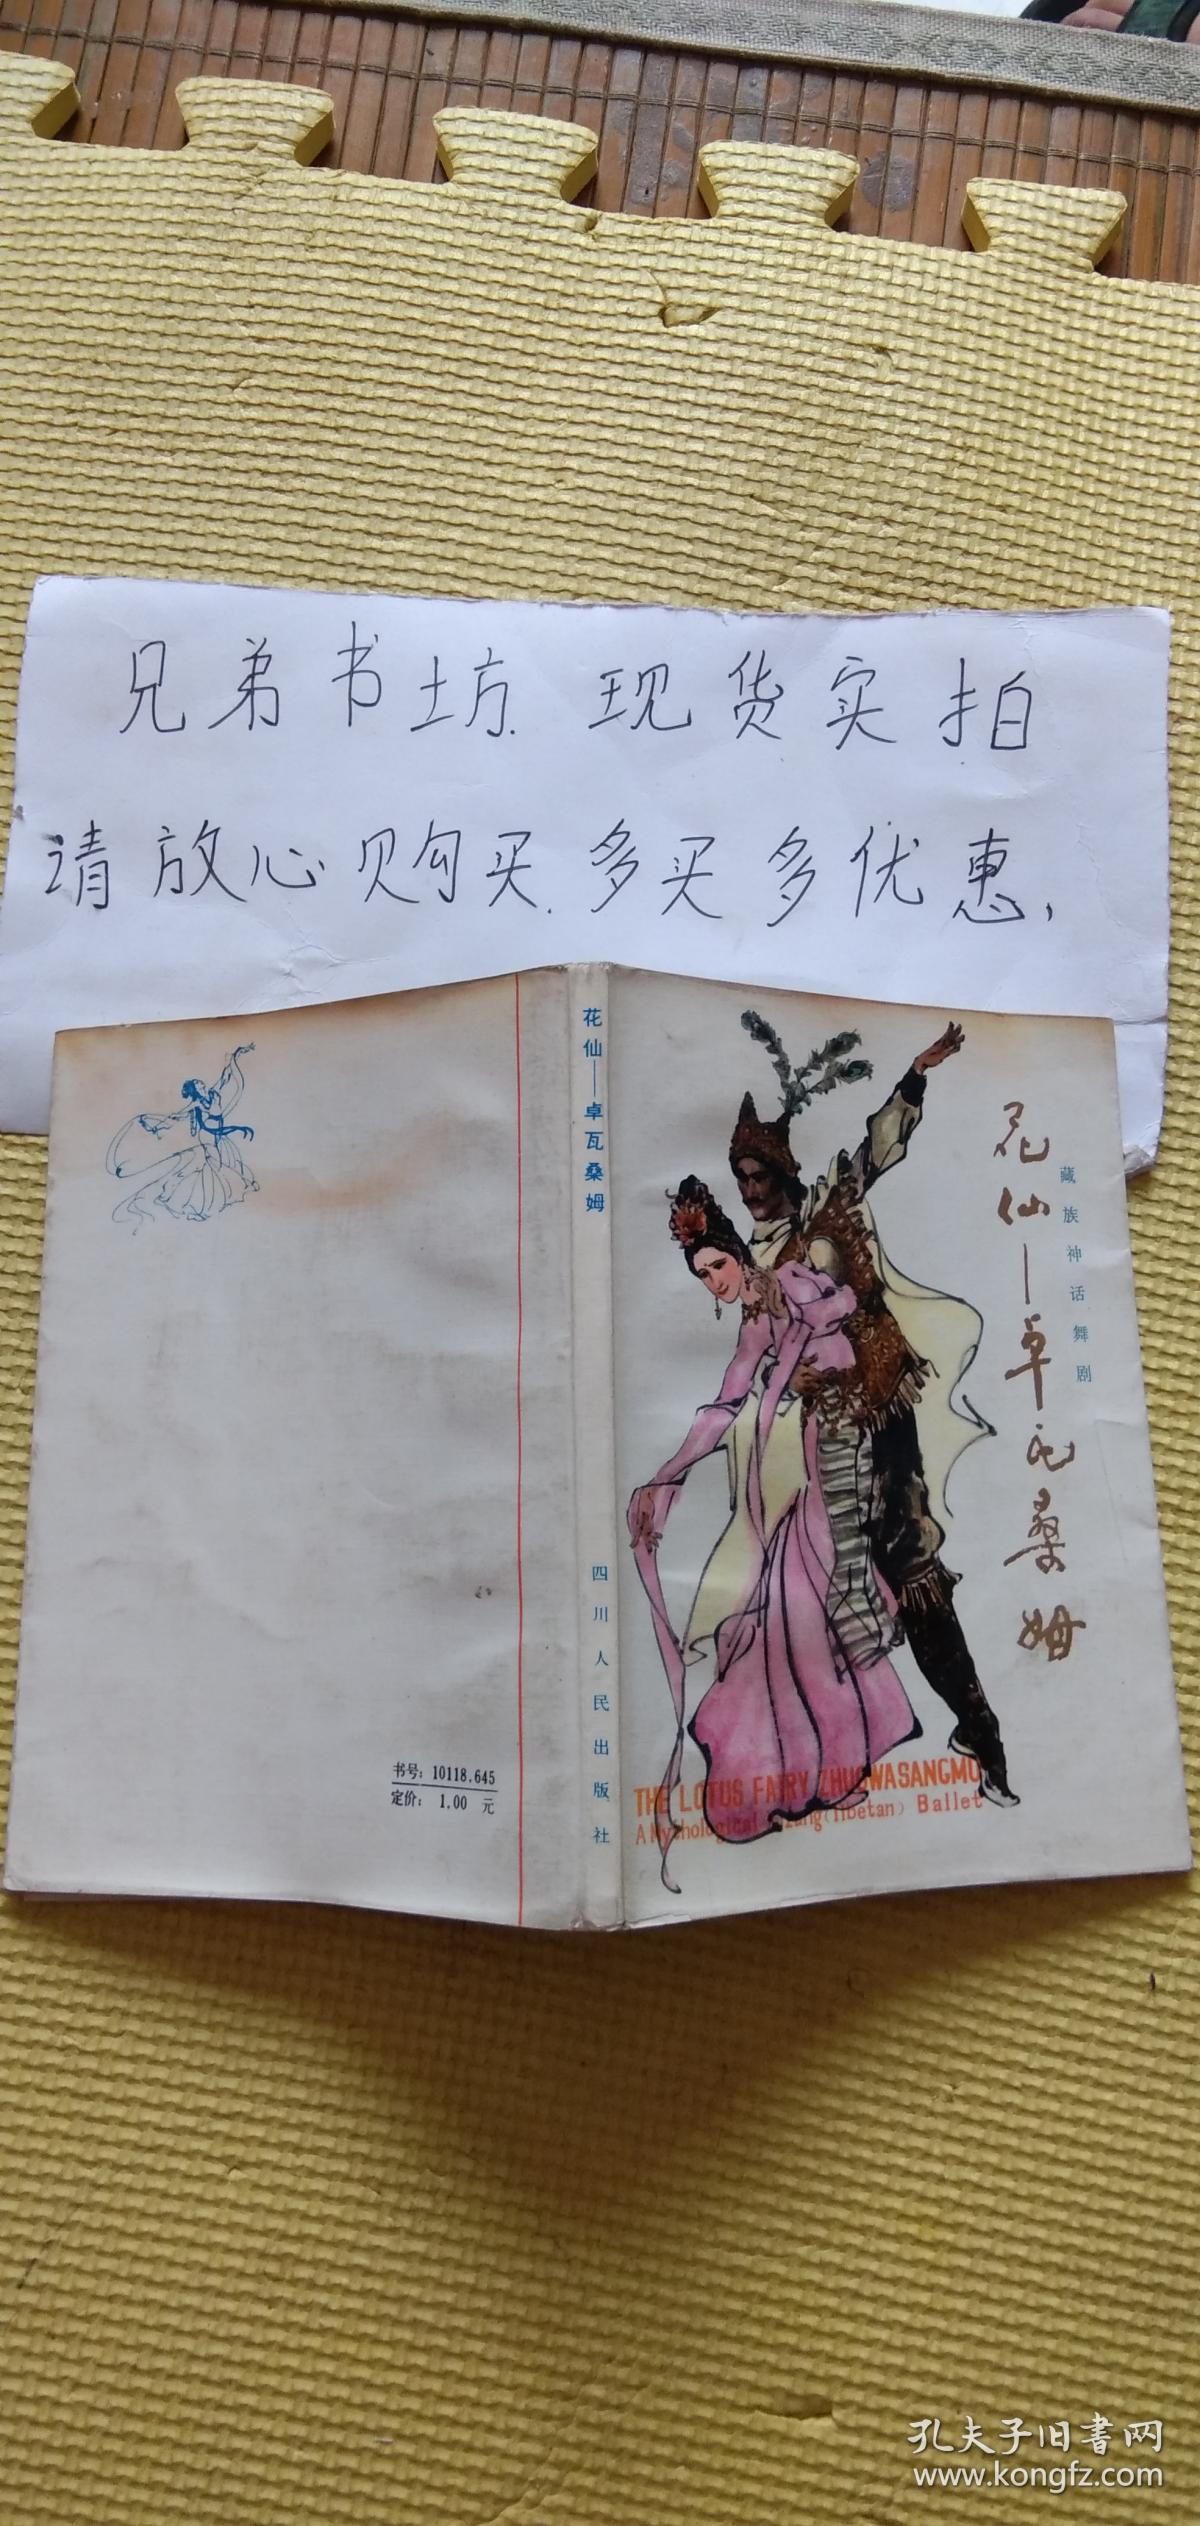 兄弟书坊.现货实拍
请放心购买.多买多优惠、
花仙——卓瓦桑姆
四川人民出版社
花仙—卓瓦桑姆
藏族神话舞剧
THE LOTUS FAIRY ZHUOWASANGMU
A Mythological Zang(Tibetan) Ballet
书号:10118.645
定价: 1.00 元
孔夫子旧书网
www.kongfz.com